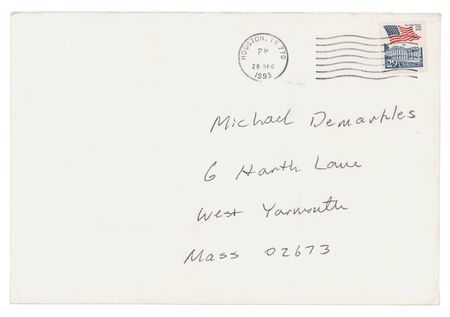 HOUSTON, TX 770
PM
28 DEC
1993
Michael Demarkles
6 Harth Lane
West Yarmouth
Mass 02673